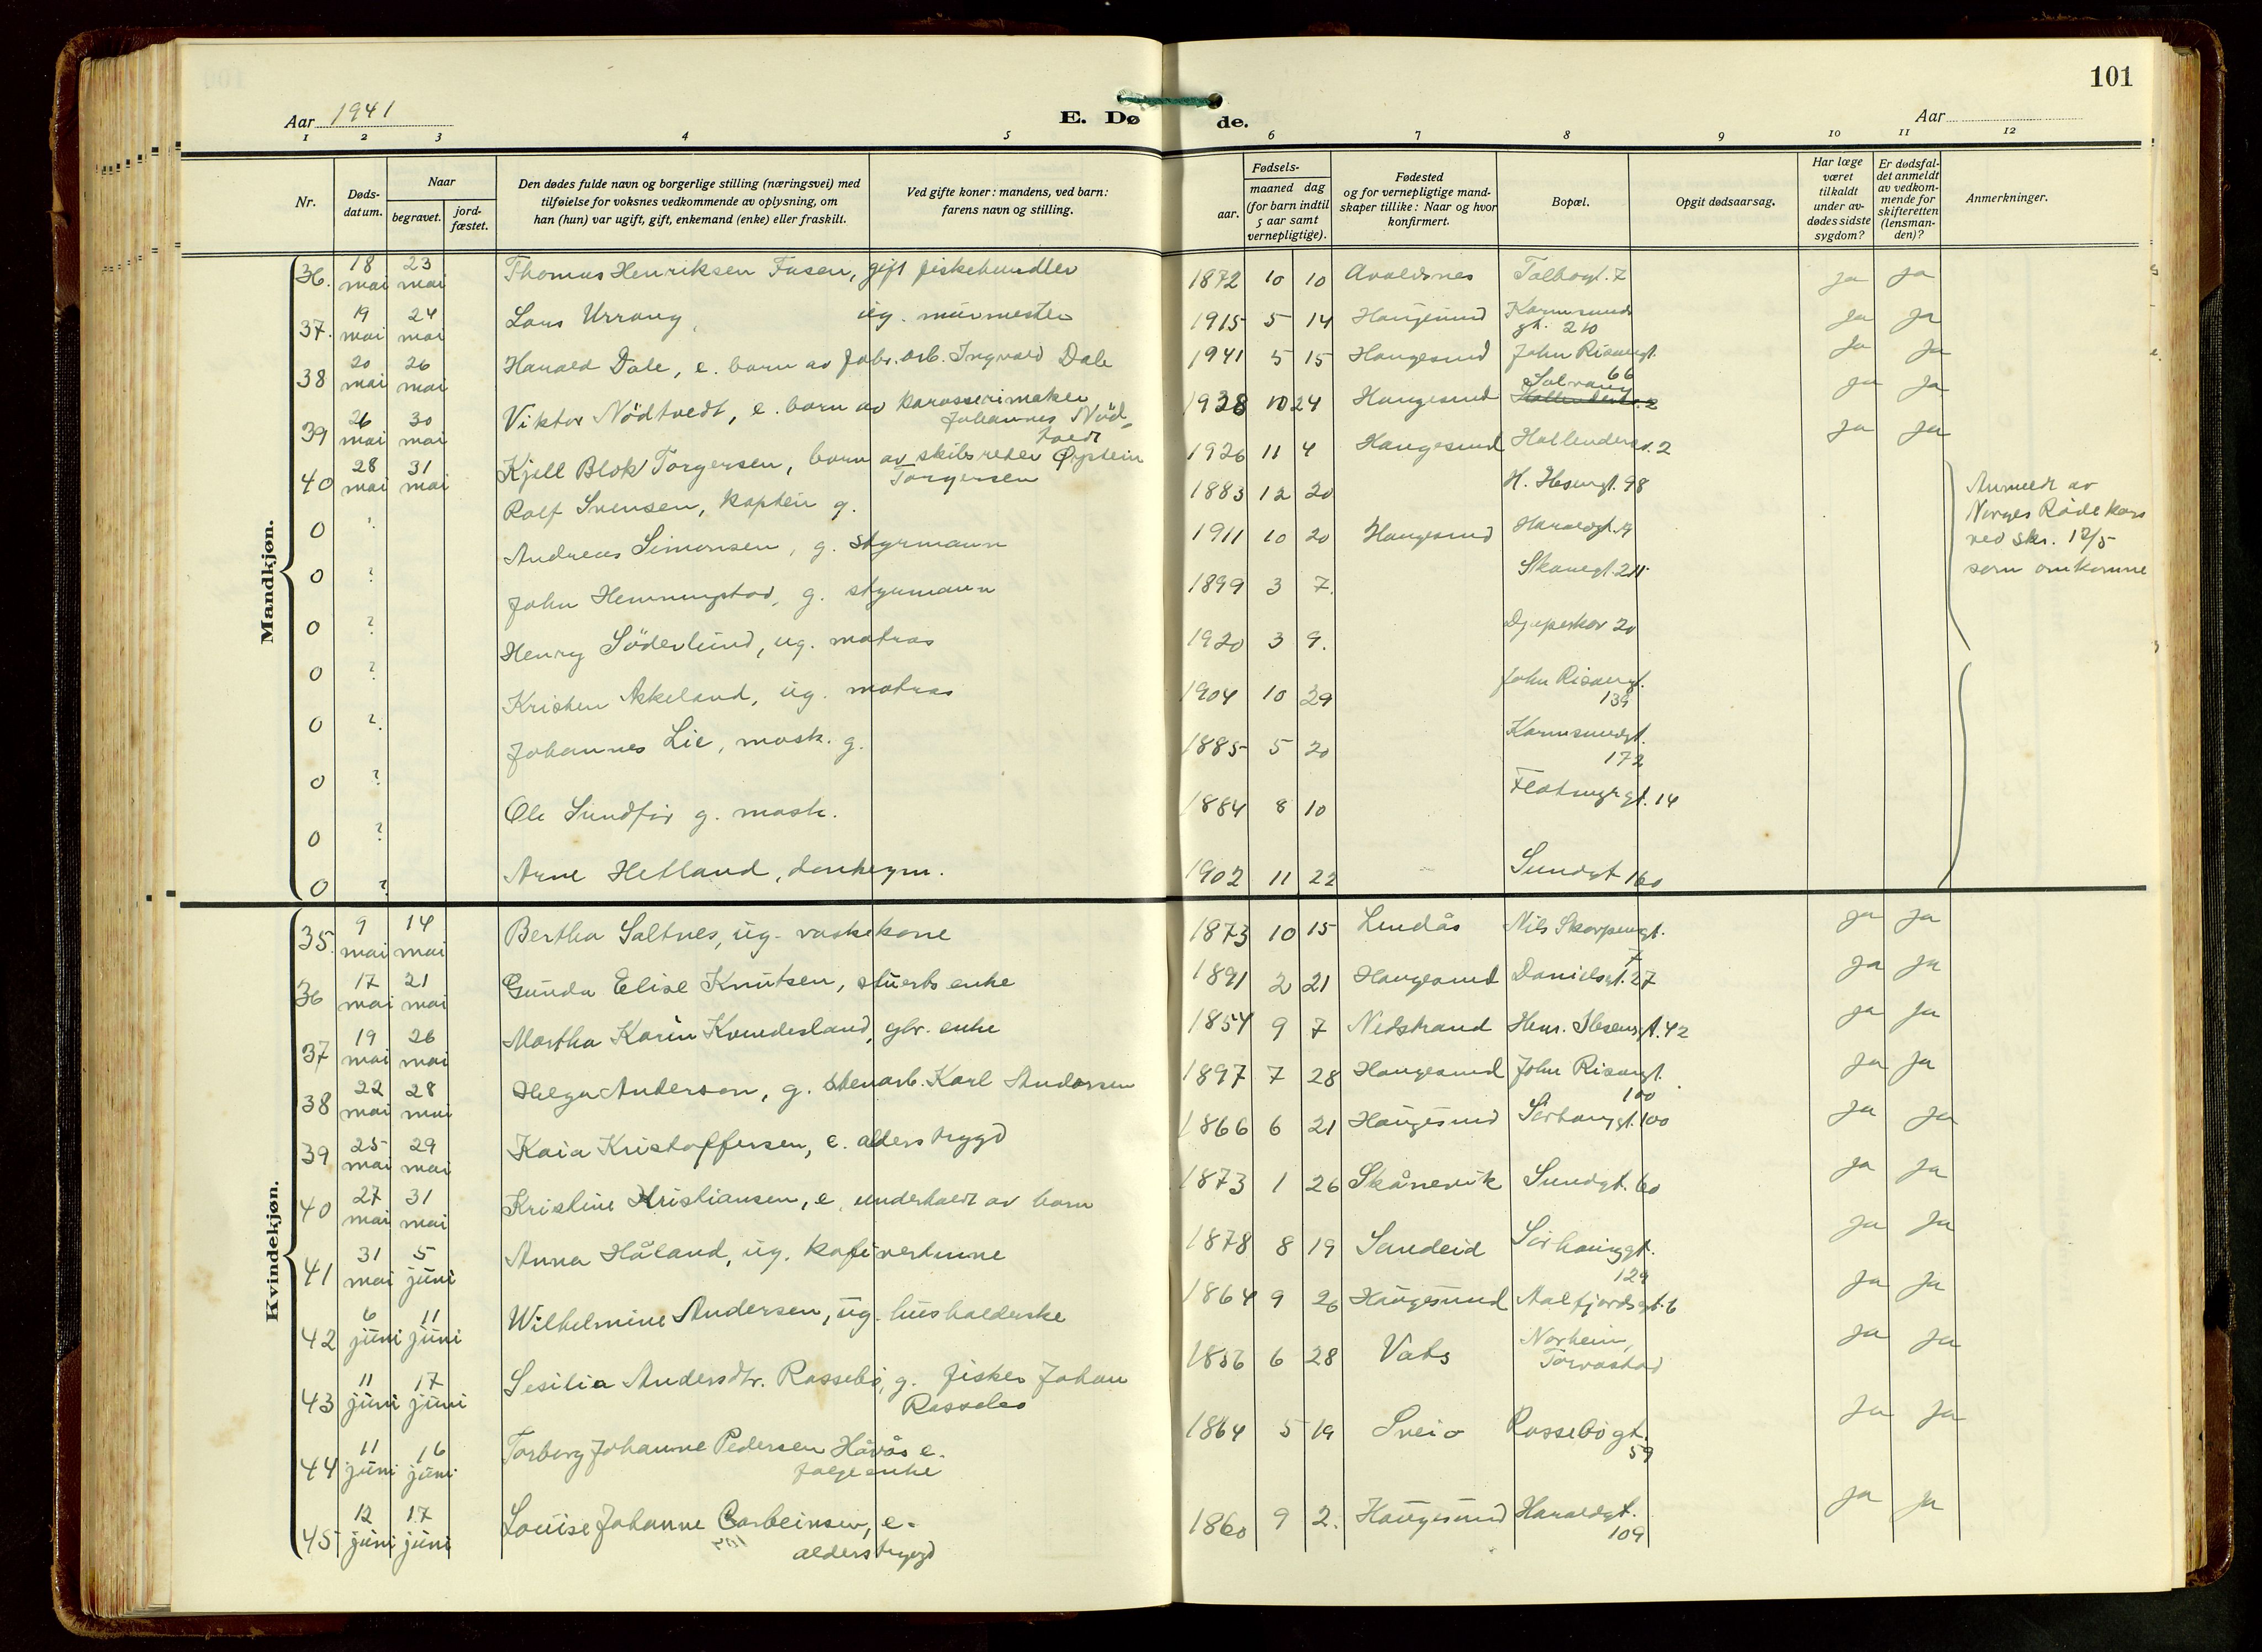 101
Aar 1941
E. Dø de.
Aar
1 2 3 4 5 6 7 8 9 10 11 12
Nr.
Døds-
datum.
Naar
begravet.
jord-
fæstet.
Den dødes fulde navn og borgerlige stilling (næringsvei) med
tilføielse for voksnes vedkommende av oplysning, om
han (hun) var ugift, gift, enkemand (enke) eller fraskilt.
Ved gifte koner: mandens, ved barn:
farens navn og stilling.
Fødsels-
aar.
maaned dag
(for barn indtil
5 aar samt
vernepligtige).
Fødested
og for vernepligtige mand-
skaper tillike: Naar og hvor
konfirmert.
Bopæl.
Opgit dødsaarsag.
Har læge
været
tilkaldt
under av-
dødes sidste
sygdom?
Er dødsfal-
det anmeldt
av vedkom-
mende for
skifteretten
(lensman-
den)?
Anmerkninger.
Mandkjøn.
36. 18 mai 23 mai Thomas Henriksen Fasen, gift fiskehandler 1872 10 10 Avaldsnes Talbogt. 7 ja ja
37. 19 mai 24 mai Lars Urrang, ug. murmester 1915 5 14 Haugesund Karmsunds
gt. 210 ja ja
38 20 mai 26 mai Harald Dale, e. barn av fabr. arb. Ingvald Dale 1941 5 15 Haugesund John Risangt.
66 ja ja
39 26 mai 30 mai Viktor Nödtvedt, e. barn av karosserimaker
Johannes Nöd-
tvedt 1938 10 24 Haugesund Salvang ja ja
40 28 mai 31 mai Kjell Blok Torgersen, barn av skibsreder Øystein
Torgersen 1926 11 4 Haugesund Hollenderv. 2 ja ja
0 ? Rolf Svensen, kaptein g. 1883 12 20 H. Ibsengt. 98
0 ? Andreas Simonsen, g. styrmann 1911 10 20 Haugesund Haraldgt.
0 ? John Hemmingstad, g. styrmann 1899 3 7. Skaregt. 211
0 ? Henry Söderlund, ug. matros 1920 3 9. Djupaskar 20
0 ? Kristen Askeland, ug. matros 1904 10 29 John Risangt.
139
0 ? Johannes Lie, mask. g. 1885 5 20 Karmsundgt.
172
0 ? Ole Sundfør g. mask. 1884 8 10 Flotmyrgt. 14
0 ? Arne Hetland, donkeym. 1902 11 22 Sundgt 160
Anmeldt av
Norges Röde kors
ved skr. 12/5
som omkomne
Kvindekjøn.
35. 9 mai 14 mai Bertha Saltnes, ug. vaskekone 1873 10 15 Lindås Nils Skorpengt.
7 ja ja
36 17 mai 21 mai Gunda Elise Knutsen, stuerts enke 1891 2 21 Haugesund Danielsgt. 27 ja ja
37 19 mai 26 mai Martha Karin Kvindesland, gbr. enke 1854 9 7 Nedstrand Henr. Ibsensgt. 42 ja ja
38 22 mai 28 mai Helga Anderson, g. stenarb. Karl Anderssen 1897 7 28 Haugesund John Risangt.
100 ja ja
39 25 mai 29 mai Kaia Kristoffersen, e. alderstrygd 1866 6 21 Haugesund Sörhauggt. 100 ja ja
40 27 mai 31 mai Kristine Kristiansen, e. underholdt av barn 1873 1 26 Skånevik Sundgt. 60 ja ja
41 31 mai 5 juni Anna Håland, ug. kafévertinne 1878 8 19 Sandeid Sörhauggt.
129 ja ja
42 6 juni 11 juni Wilhelmine Andersen, ug. husholderske 1864 9 26 Haugesund Aalfjordsgt. 6 ja ja
43 11 juni 17 juni Sesilia Andersdtr. Rossebö, g. fisker Johan
Rossebö 1856 6 28 Vats Norheim,
Torvastad ja ja
44 11 juni 16 juni Torborg Johanne Pedersen Håvås e.
folgeenke 1864 5 19 Sveio Rossebögt.
59 ja ja
45 12 juni 17 juni Louise Johanne e.
alderstrygd 1860 9 2. Haugesund Haraldgt.
109 ja ja